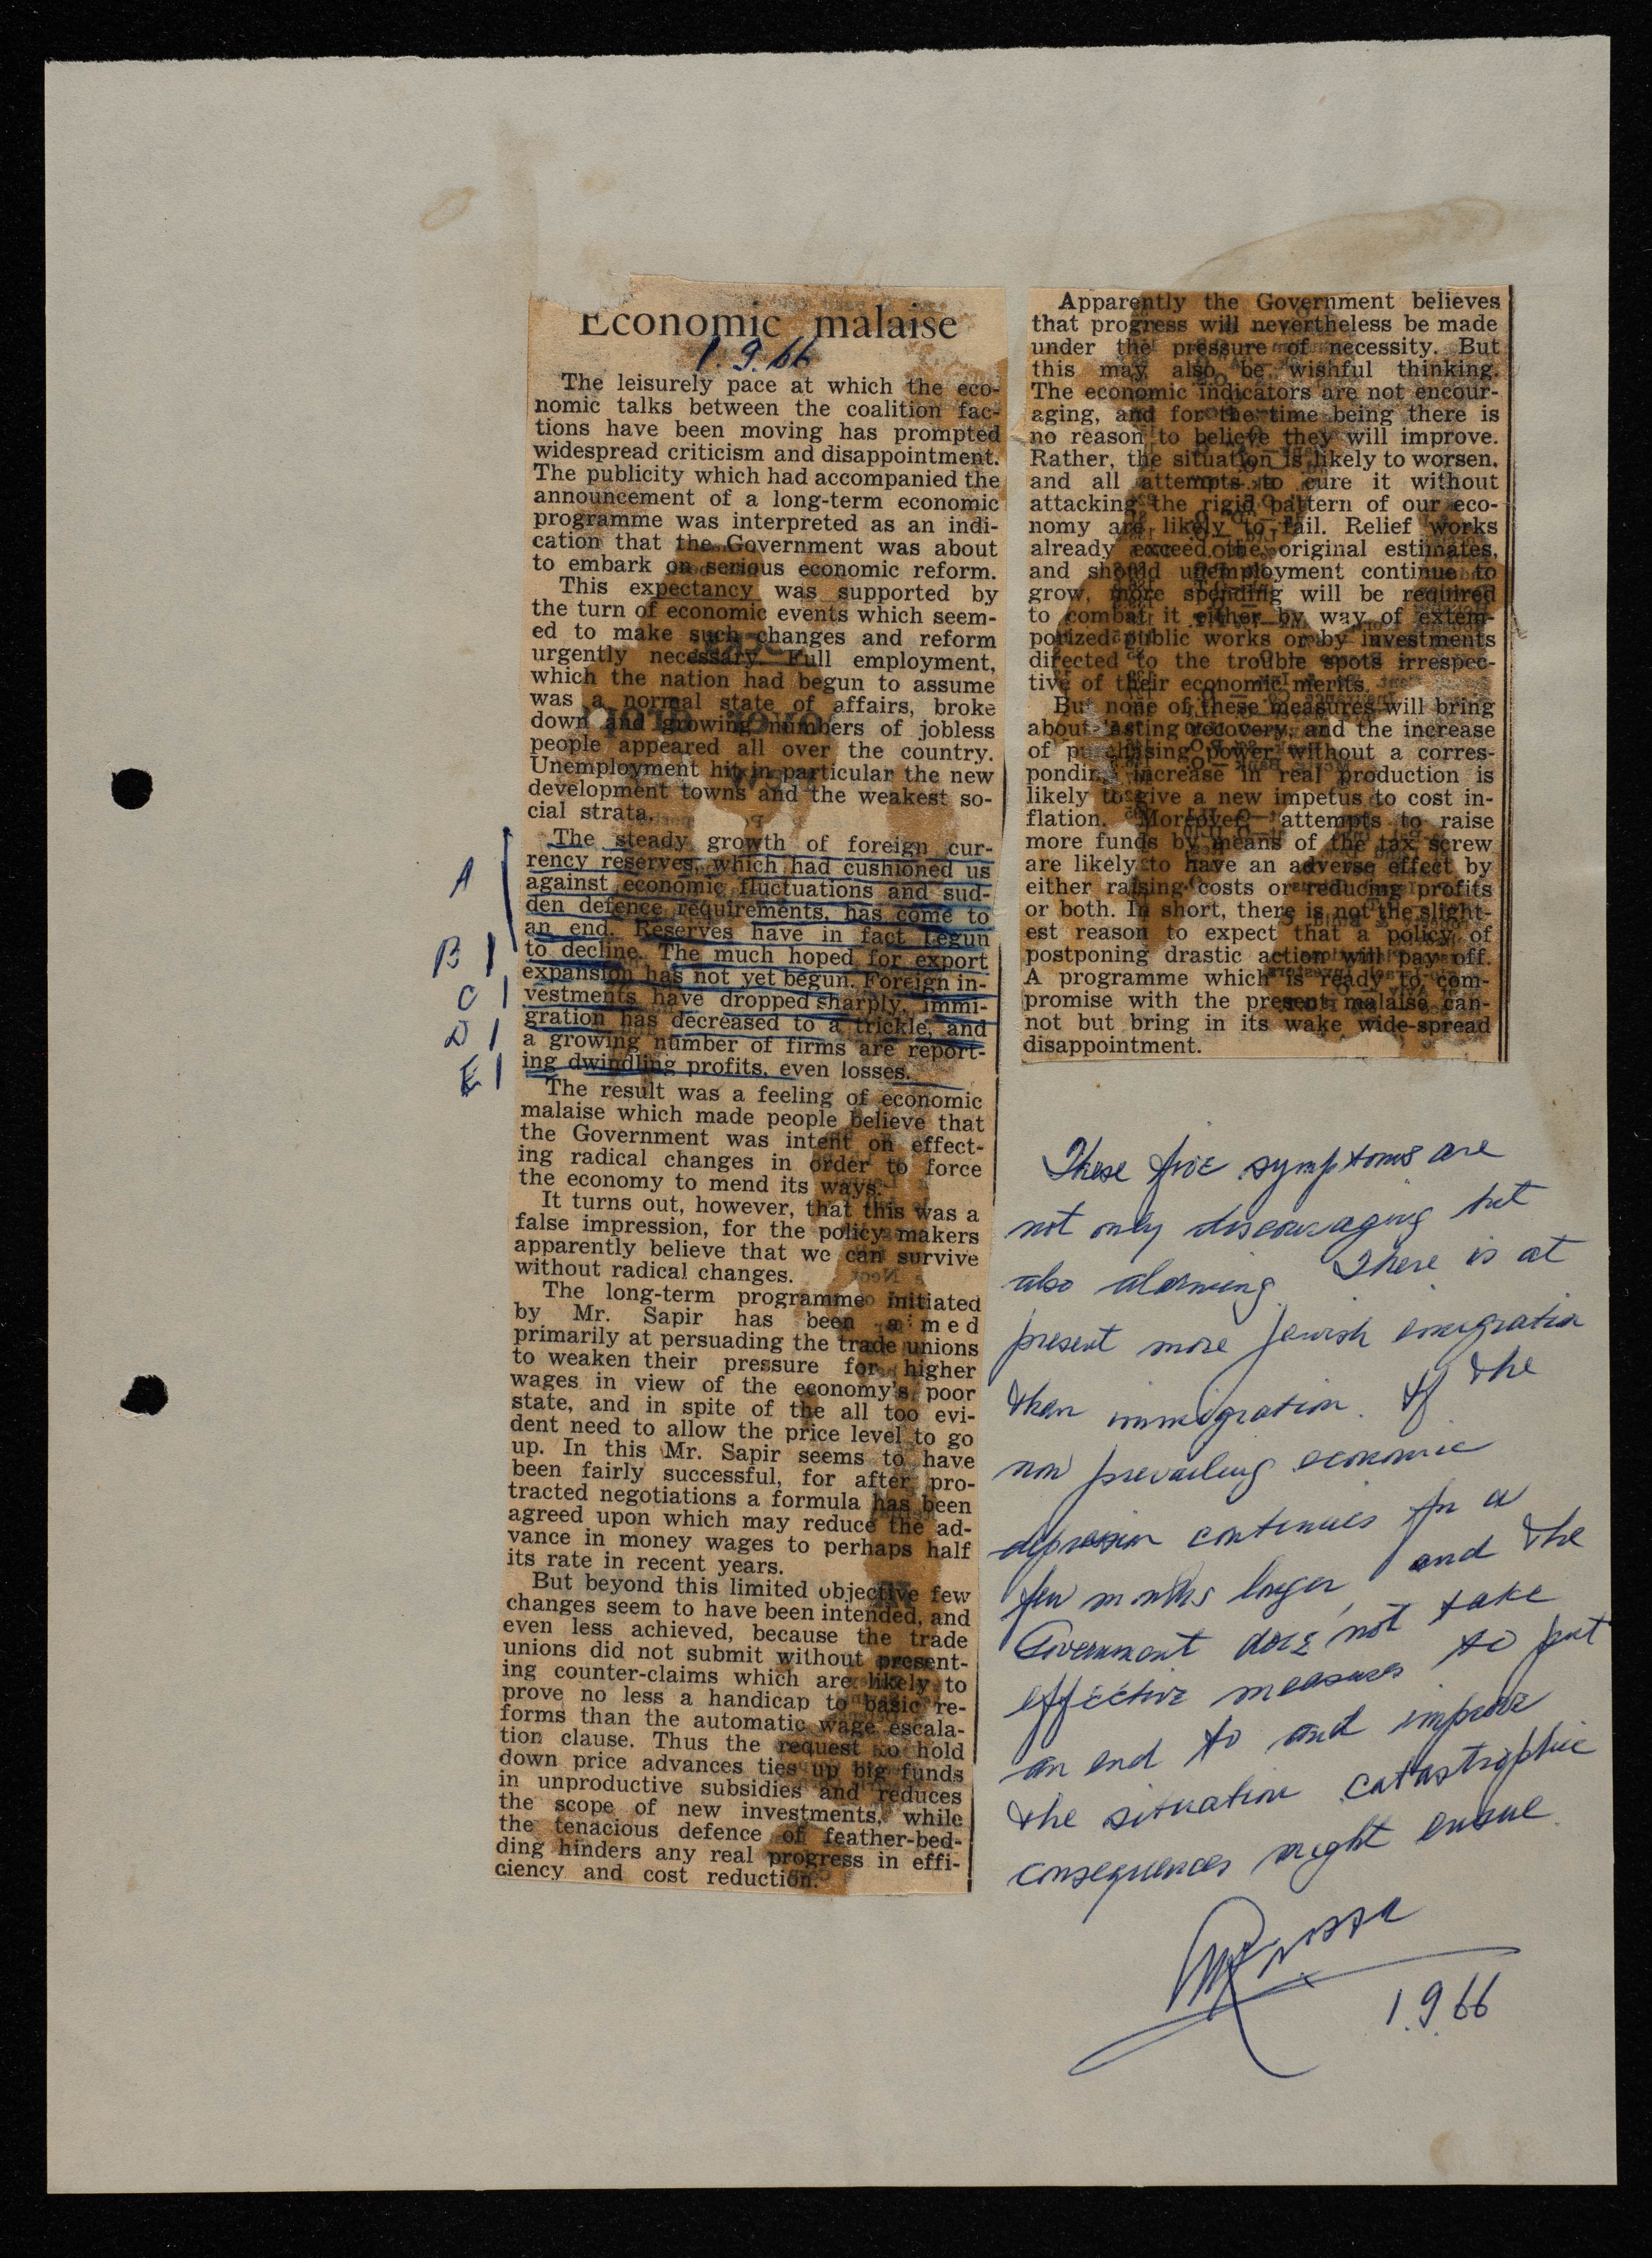 Economic malaise
1.9.66
The leisurely pace at which the eco-
nomic talks between the coalition fac-
tions have been moving has prompted
widespread criticism and disappointment.
The publicity which had accompanied the
announcement of a long-term economic
programme was interpreted as an indi-
cation that the Government was about
to embark on serious economic reform.
This expectancy was supported by
the turn of economic events which seem-
ed to make such changes and reform
urgently necessary. Full employment,
which the nation had begun to assume
was a normal state of affairs, broke
down and growing numbers of jobless
people appeared all over the country.
Unemployment hit in particular the new
development towns and the weakest so-
cial strata.
The steady growth of foreign cur-
rency reserves, which had cushioned us
A
against economic fluctuations and sud-
den defence requirements, has come to
an end. Reserves have in fact begun
B
to decline. The much hoped for export
expansion has not yet begun. Foreign in-
C
vestments have dropped sharply, immi-
gration has decreased to a trickle, and
D
a growing number of firms are report-
E
ing dwindling profits, even losses.
The result was a feeling of economic
malaise which made people believe that
the Government was intent on effect-
ing radical changes in order to force
the economy to mend its ways.
It turns out, however, that this was a
false impression, for the policy makers
apparently believe that we can survive
without radical changes.
The long-term programme initiated
by Mr. Sapir has been aimed
primarily at persuading the trade unions
to weaken their pressure for higher
wages in view of the economy's poor
state, and in spite of the all too evi-
dent need to allow the price level to go
up. In this Mr. Sapir seems to have
been fairly successful, for after pro-
tracted negotiations a formula has been
agreed upon which may reduce the ad-
vance in money wages to perhaps half
its rate in recent years.
But beyond this limited objective few
changes seem to have been intended, and
even less achieved, because the trade
unions did not submit without present-
ing counter-claims which are likely to
prove no less a handicap to basic re-
forms than the automatic wage escala-
tion clause. Thus the request to hold
down price advances ties up big funds
in unproductive subsidies and reduces
the scope of new investments, while
the tenacious defence of feather-bed-
ding hinders any real progress in effi-
ciency and cost reduction.
Apparently the Government believes
that progress will nevertheless be made
under the pressure of necessity. But
this may also be wishful thinking.
The economic indicators are not encour-
aging, and for the time being there is
no reason to believe they will improve.
Rather, the situation is likely to worsen,
and all attempts to cure it without
attacking the rigid pattern of our eco-
nomy are likely to fail. Relief works
already exceed the original estimates,
and should unemployment continue to
grow, more spending will be required
to combat it either by way of extem-
porized public works or by investments
directed to the trouble spots irrespec-
tive of their economic merits.
But none of these measures will bring
about lasting recovery, and the increase
of purchasing power without a corres-
ponding increase in real production is
likely to give a new impetus to cost in-
flation. Moreover, attempts to raise
more funds by means of the tax screw
are likely to have an adverse effect by
either raising costs or reducing profits
or both. In short, there is not the slight-
est reason to expect that a policy of
postponing drastic action will pay off.
A programme which is ready to com-
promise with the present malaise can-
not but bring in its wake wide-spread
disappointment.
These five symptoms are
not only discouraging but
also alarming. There is at
present more Jewish emigration
than immigration. If the
now prevailing economic
depression continues for a
few months longer, and the
Government does not take
effective measures to put
an end to and improve
the situation catastrophic
consequences might ensue.
1.9.66